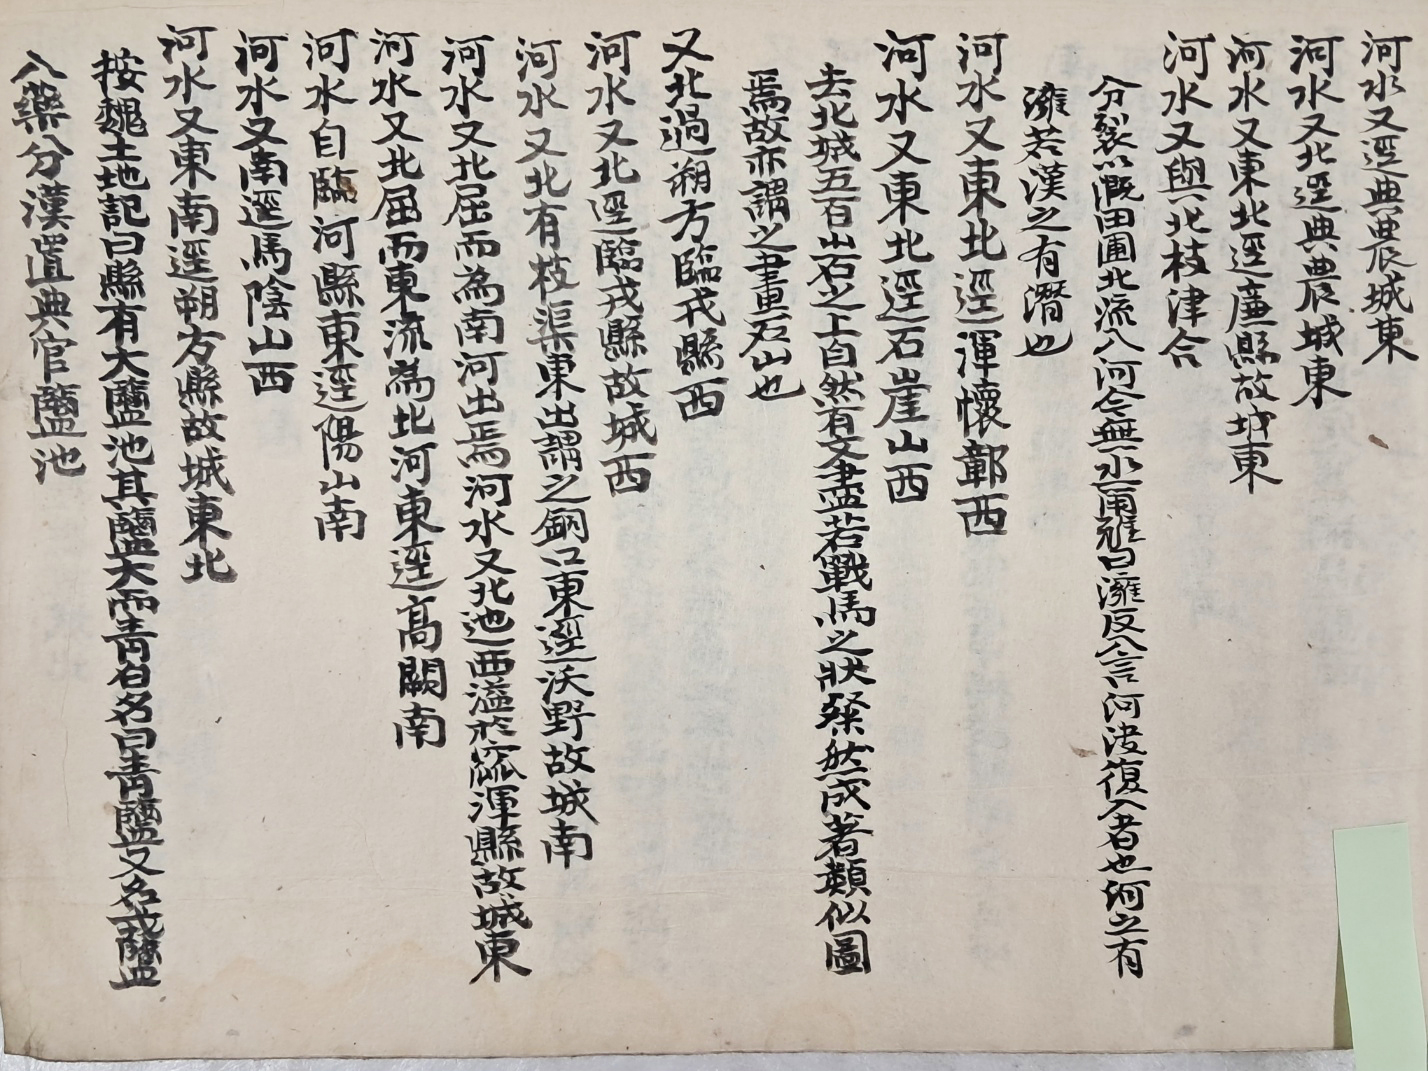 河水又逕典農城東
河水又北逕典農城東
河水又東北逕廉縣故城東
河水又與北枝津合
分裂以溉田圃北流入河今無水爾雅曰灉反入言河決復入者也河之有
灉若漢之有潛也
河水又東北逕渾懷鄣西
河水又東北逕石崖山西
去北城五百山石之上自然有文盡若戰馬之狀粲然成著類似圖
焉故亦謂之畫石山也
又北過朔方臨戎縣西
河水又北逕臨戎縣故城西
河水又北有枝渠東出謂之銅口東逕沃野故城南
河水又北屈而為南河出焉河水又北迆西溢於窳渾縣故城東
河水又北屈而東流為北河東逕高闕南
河水自臨河縣東逕陽山南
河水又南逕馬陰山西
河水又東南逕朔方縣故城東北
按魏土地記曰縣有大鹽池其鹽大而青白名曰青鹽又名戎鹽
入藥分漢置典官鹽池